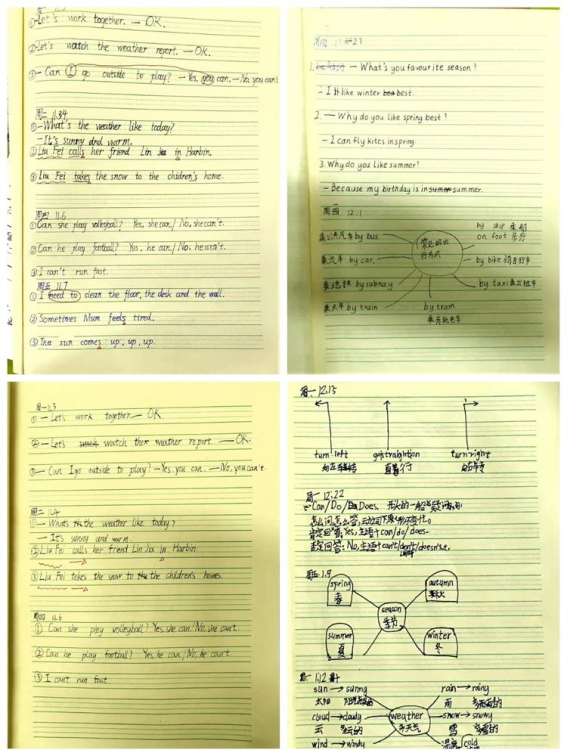 ①-Let's work together. — OK.
②Let's watch the weather report. —OK.
③- Can I go outside to play? -Yes, you can. -No, you can't
周二 11.
①-What's the weather like today?
-It's sunny and warm.
②Liu Fei calls her friend Lin in Harbin.
③ Liu Fei takes the snow to the children's home.
周四 11.6
①Can she play volleyball? Yes, she can./ No, she can't.
②Can he play football? Yes, he can./ No, he can't.
③I can't run fast.
周五 11.7
①I need to clean the floor, the desk and the wall.
②Sometimes Mum feels tired.
③The run comes up, up, up.
1. — What's you favourite season?
- I like winter best.
2. —Why do you like spring best?
- I can fly kites in spring.
3. Why do you like summer?
- Because my birthday is in summer.
周 12.1
by ship 乘船
乘公共汽车 by bus
on foot 步行
乘汽车 by car
by bike 骑自行车
乘地铁 by subway
by taxi 乘出租车
乘火车 by train
by tram
乘有轨电车
周一 11.3
①-Let's work together — OK.
②-Let's watch weather report. — OK.
③- Can I go outside to play? -Yes, you can. -No, you can't
周二 11.4
①-Whats the weather like today?
-It's sunny and warm.
②Liu Fei calls her friend Liu in Harbin.
③ Liu Fei takes the snow to the children's home.
周四 11.6
① Can she play volleyball? Yes she can./ No, she can't.
②Can he play football? Yes he can./ No, he can't.
③ I can't run fast.
周一 12.15
turn left
go straight
turn right
周一 12.22
Can/Do/Does
肯定回答: Yes, 主语+can/do/does
否定回答: No, 主语+can't/don't/doesn't.
周五 1.9
spring
春
autumn
秋
season
季节
summer
夏
winter
冬
周一 1.12
sun→sunny
rain→rainy
太阳
雨
cloud→cloudy
weather
天气
snow→snowy
云
雪
wind→windy
cold